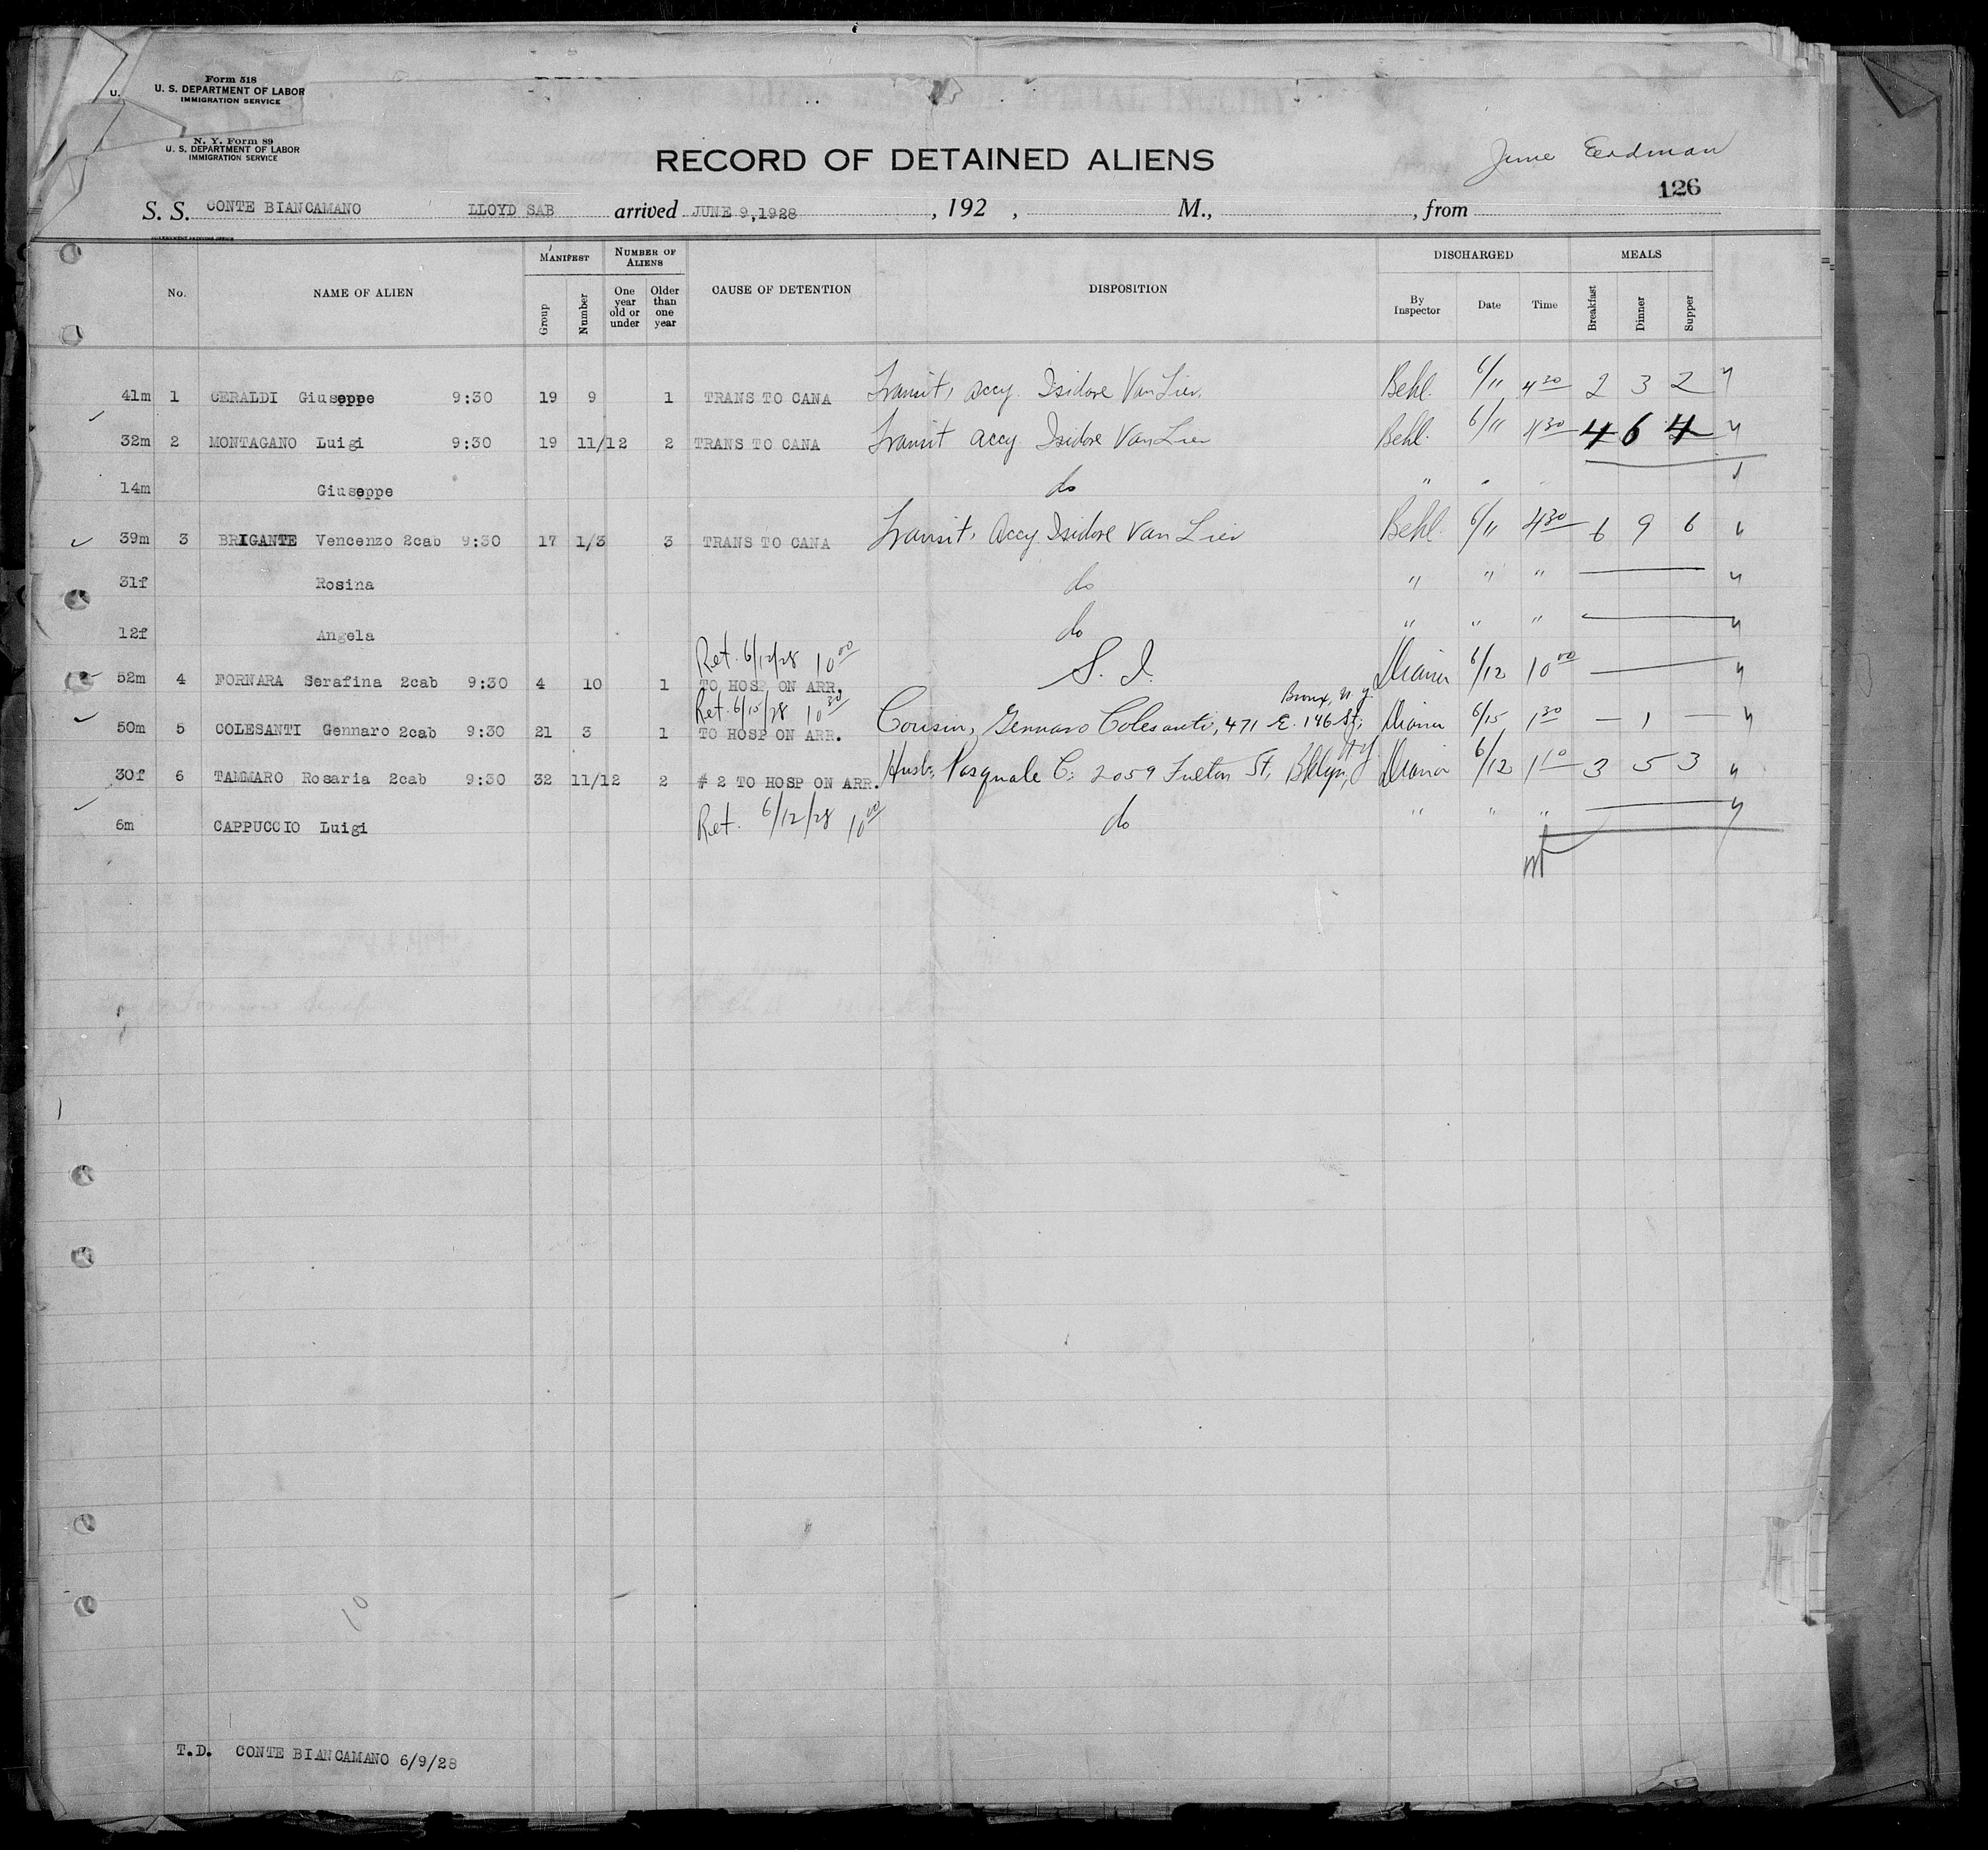 Form 518
U. S. DEPARTMENT OF LABOR
IMMIGRATION SERVICE
U.
N. Y. Form 89
U. S. DEPARTMENT OF LABOR
IMMIGRATION SERVICE
RECORD OF DETAINED ALIENS
June Eerdman
126
S. S. CONTE BIANCAMANO LLOYD SAB arrived JUNE 9,1928 , 192 , M., , from
No. NAME OF ALIEN MANIFEST Group Number NUMBER OF ALIENS One year old or under Older than one year CAUSE OF DETENTION DISPOSITION DISCHARGED By Inspector Date Time MEALS Breakfast Dinner Supper
41m 1 GERALDI Giuseppe 9:30 19 9 1 TRANS TO CANA Transit, accy. Isidore Van Lier. Behl. 6/11 4 30 2 3 2
32m 2 MONTAGANO Luigi 9:30 19 11/12 2 TRANS TO CANA Transit accy Isidore Van Lier Behl. 6/11 4 30 4 6 4
14m Giuseppe do "
39m 3 BRIGANTE Vencenzo 2cab 9:30 17 1/3 3 TRANS TO CANA Transit, accy. Isidore Van Lier Behl. 6/11 4 30 6 9 6
31f Rosina do " " "
12f Angela do " " "
Ret. 6/12/28 10 00
52m 4 FORNARA Serafina 2cab 9:30 4 10 1 TO HOSP ON ARR. S. I. 6/12 10 00 —
Ret. 6/15/28 10 30
50m 5 COLESANTI Gennaro 2cab 9:30 21 3 1 TO HOSP ON ARR. Cousin, Gennaro Colesanti, 471 E. 146 St., Bronx, N.Y. 6/15 1 30 — 1 —
30f 6 TAMMARO Rosaria 2cab 9:30 32 11/12 2 # 2 TO HOSP ON ARR. Husb, Pasquale C: 2059 Fulton St, Bklyn, NY 6/12 1 10 3 5 3
6m CAPPUCCIO Luigi Ret. 6/12/28 10 00 do " " "
T.D. CONTE BIANCAMANO 6/9/28